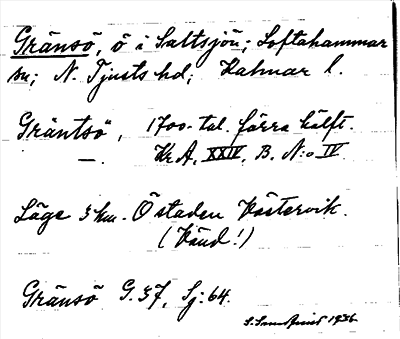 Gränsö, ö i Saltsjön; Loftahammar
sn; N. Tjusts hd; Kalmar l.
Gräntsö, 1700-tal. förra hälft.
— . Kr A, XXIV, B. N:o IV
Läge 3 km. Ö staden Västervik.
(Vänd!)
Gränsö G. 37, Sj: 64.
1936